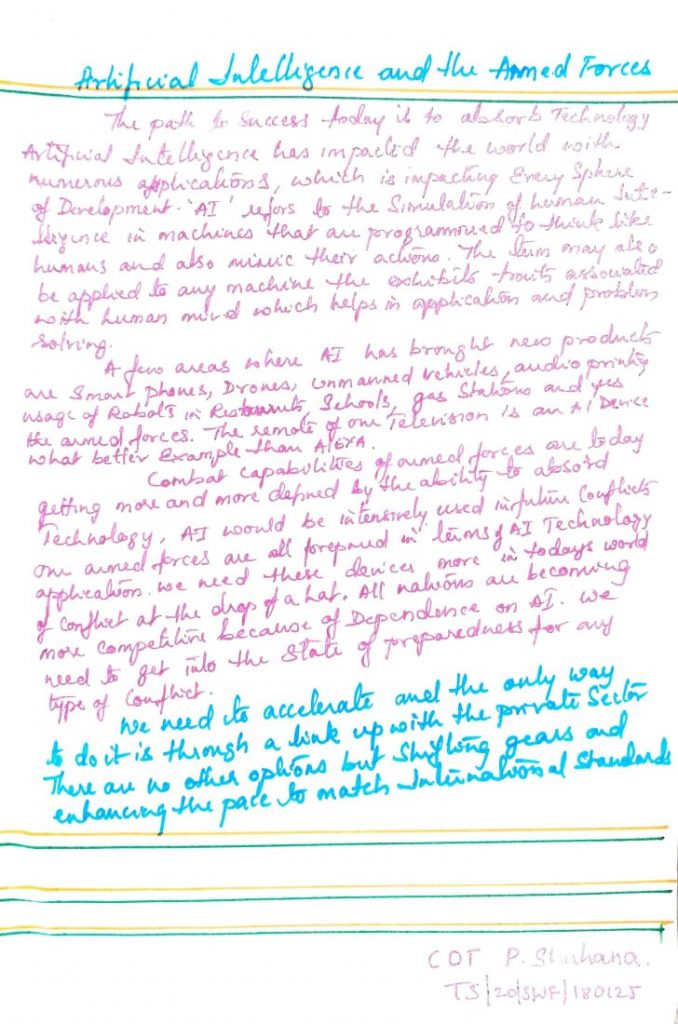 Artificial Intelligence and the Armed Forces
The path to Success today is to absorb Technology
Artificial Intelligence has impacted the world with
numerous applications, which is impacting Every Sphere
of Development. 'AI' refers to the Simulation of human Inte-
lligence in machines that are programmed to think like
humans and also mimic their actions. The term may also
be applied to any machine the exhibits traits associated
with human mind which helps in application and problem
solving.
A few areas where AI has brought new products
are Smart phones, Drones, unmanned vehicles, audio printing
usage of Robots in Restaurants, Schools, gas Stations and yes
the armed forces. The remote of our Television is an AI Device
what better Example than AlExA.
Combat capabilities of armed forces are today
getting more and more defined by the ability to absord
Technology, AI would be intensively used in future Conflicts
our armed forces are all prepared in terms of AI Technology
application. we need these devices more in todays world
of conflict at the drop of a hat. All nations are becoming
more Competitive because of Dependence on AI. We
need to get into the State of preparedness for any
type of Conflict.
We need to accelerate and the only way
to do it is through a link up with the private Sector
There are no other options but Shifting gears and
enhancing the pace to match International Standards
CDT P. Shahana.
TS/20/SWF/180125